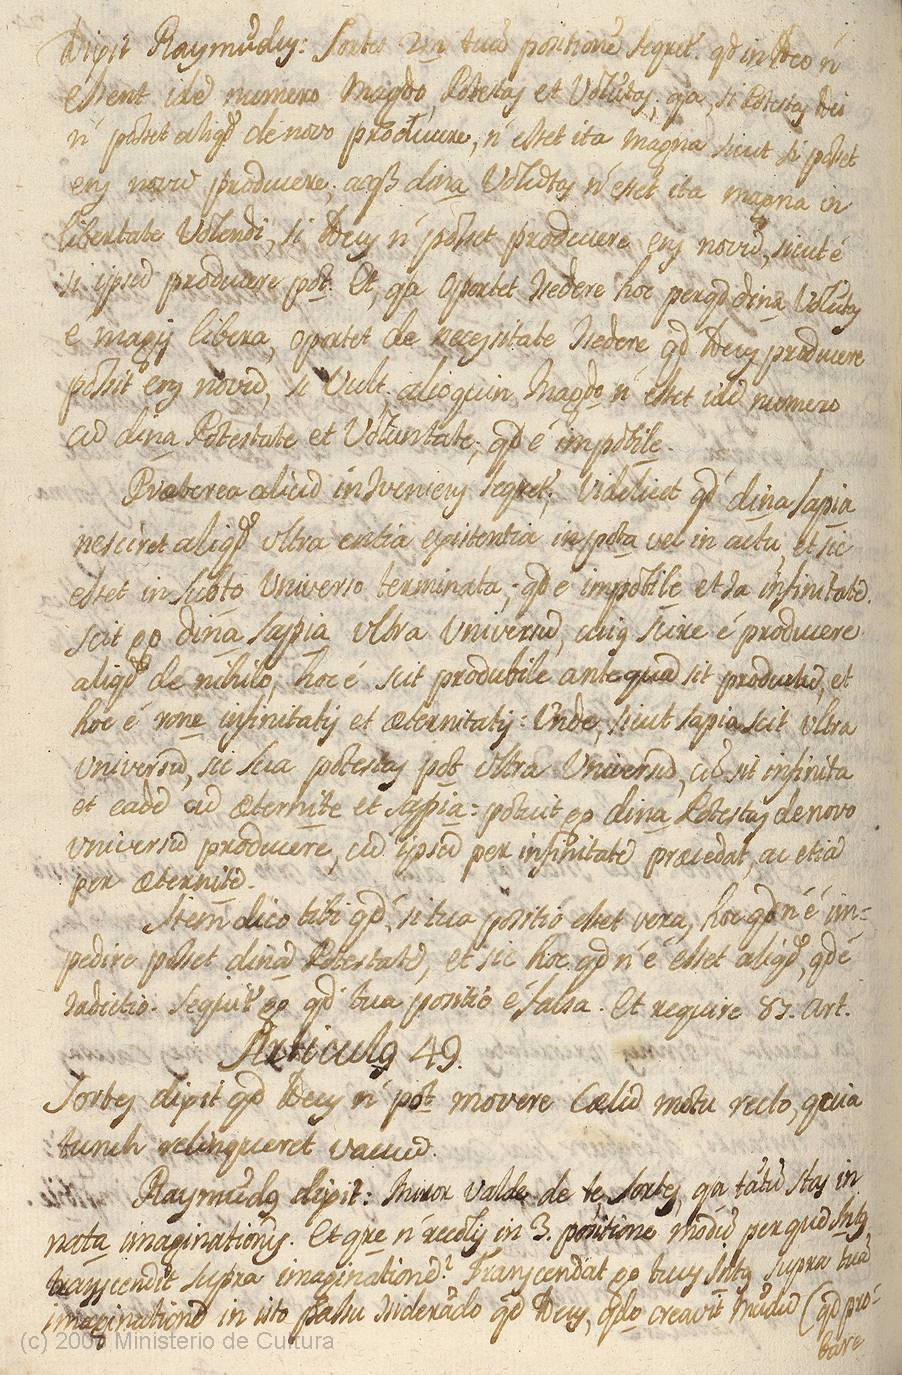 dixit Raymũdus: Sortes in tuã positionẽ sequet. qd in Deo ñ
essent idẽ numero Magdo, Potestas et Volũtas; qa, si Potestas Dei
ñ posset aliqd de novo producere, ñ esset ita magna sicut si posset
ens novũ producere; acq̃ dina Volũtas ñ esset ita magna in
libertate Volendi, si Deus ñ posset producere ens novũ, sicut é
si ipsũ producere pot. Et, qa oportet cedere hoc per qd dina Volũtas
é magis libera, oportet de necessitate cedere qd Deus producere
possit ens novũ, si Vult. alioquin Magdo ñ esset idẽ numero
cũ dina Potestate et Voluntate; qd é impobile.
Præterea aliud inconveniens sequet, Videlicet qd dina sapia
nesciret aliqd ultra entia existentia in pota vel in actu et sic
esset in subto Universo terminata; qd é impobile et ca infinitatẽ.
scit go dina sapia ultra Universũ, cuius scire é producere
aliqd de nihilo, hoc é scit produbile antequã sit productũ, et
hoc é rone infinitatis et æternitatis: Unde, sicut sapia scit ultra
Universũ, sic sua potestas pot ultra Universũ, cũ sit infinita
et eadẽ cũ æternite et sapia: potuit go dina Potestas de novo
Universũ producere, cũ ipsũ per infinitatẽ præcedat, ac etiã
per æternitẽ.
Item dico tibi qd, si tua positio esset vera, hoc qd ñ é im=
pedire posset dinã Potestatẽ, et sic hoc qd ñ é esset aliqd, qd é
cadictio. Sequit go qd tua positio é falsa. Et require 83. Art.
Articulus 49.
Sortes dixit qd Deus ñ pot movere Cælũ motu recto, quia
tunch relinqueret vacuũ.
Raymũdus dixit: Miror Valde de te, Sortes, qa tãtũ stas in
nata imaginationis. Et qre ñ recolis in 3. positione modũ per quẽ Intus
transcendit supra imaginationẽ? Transcendat go tuus Intus supra tuã
imaginationẽ in isto passu considerãdo qd Deus, qdo creavit Mũdũ (qd pro=
bare
(c) 2006 Ministerio de Cultura